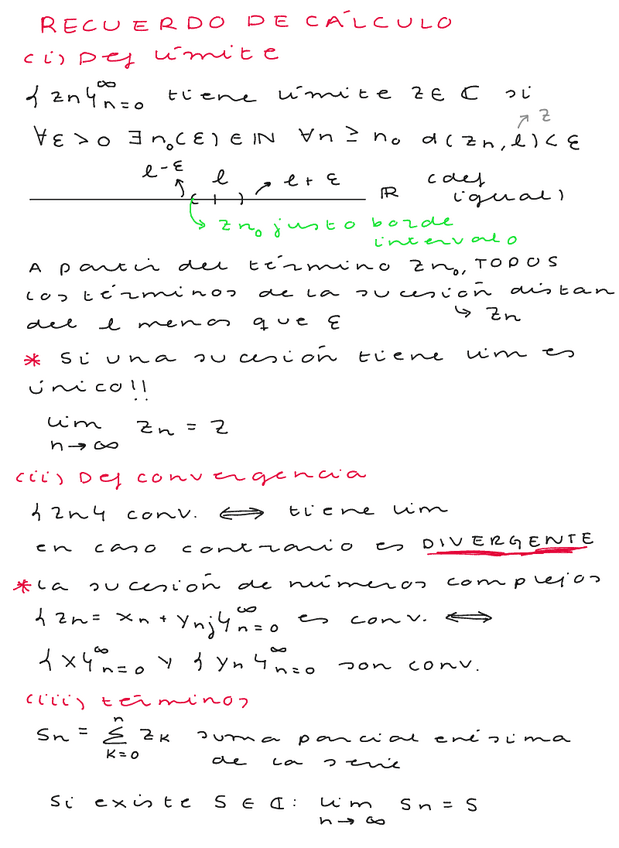 RECUERDO DE CÁLCULO
(i) Def límite
{zn}∞n=0 tiene límite z ∈ ℂ si
z
∀ε > 0 ∃n₀(ε) ∈ ℕ ∀n ≥ n₀ d(zn, l) < ε
l-ε l l+ε ℝ (def igual)
zn₀ justo borde
intervalo
A partir del término zn₀, TODOS
los términos de la sucesión distan
del l menos que ε zn
* Si una sucesión tiene lim es
único!!
lim zn = z
n→∞
(ii) Def convergencia
{zn} conv. ⟺ tiene lim
en caso contrario es DIVERGENTE
*La sucesión de números complejos
{zn = xn + ynj}∞n=0 es conv. ⟺
{x}∞n=0 y {yn}∞n=0 son conv.
(iii) términos
Sn = n∑k=0 zk suma parcial enésima
de la serie
Si existe S ∈ ℂ: lim Sn = S
n→∞